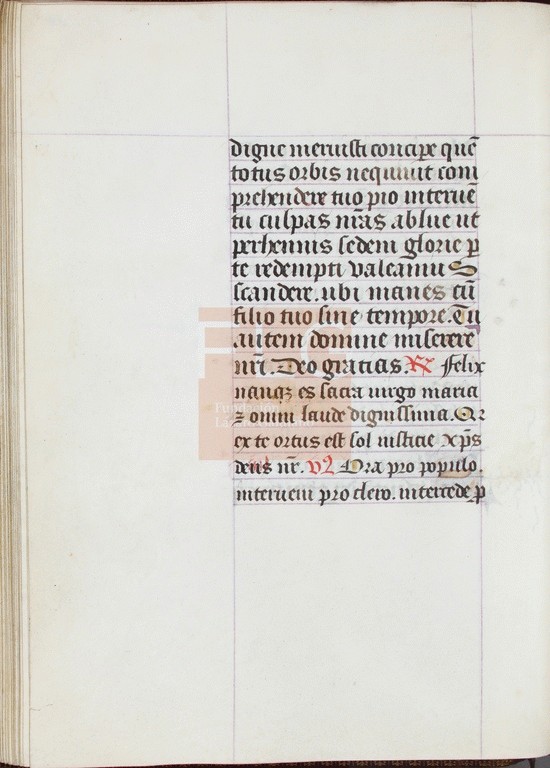 digne meruisti concipe quē
totus orbis nequiuit com
prehendere tuo pio interuē
tu culpas nr̄as ablue ut
perhennis sedem glorie ꝑ
te redempti valeamus
scandere. ubi manes cū
filio tuo sine tempore. Tu
autem domine miserere
nr̄i. Deo gratias. R⁊ Felix
nanqꝫ es sacra uirgo maria
⁊ omni laude dignissima. Qr
ex te ortus est sol iusticie xp̄s
deus nr̄. V Ora pro populo.
interueni pro clero. intercede ꝑ